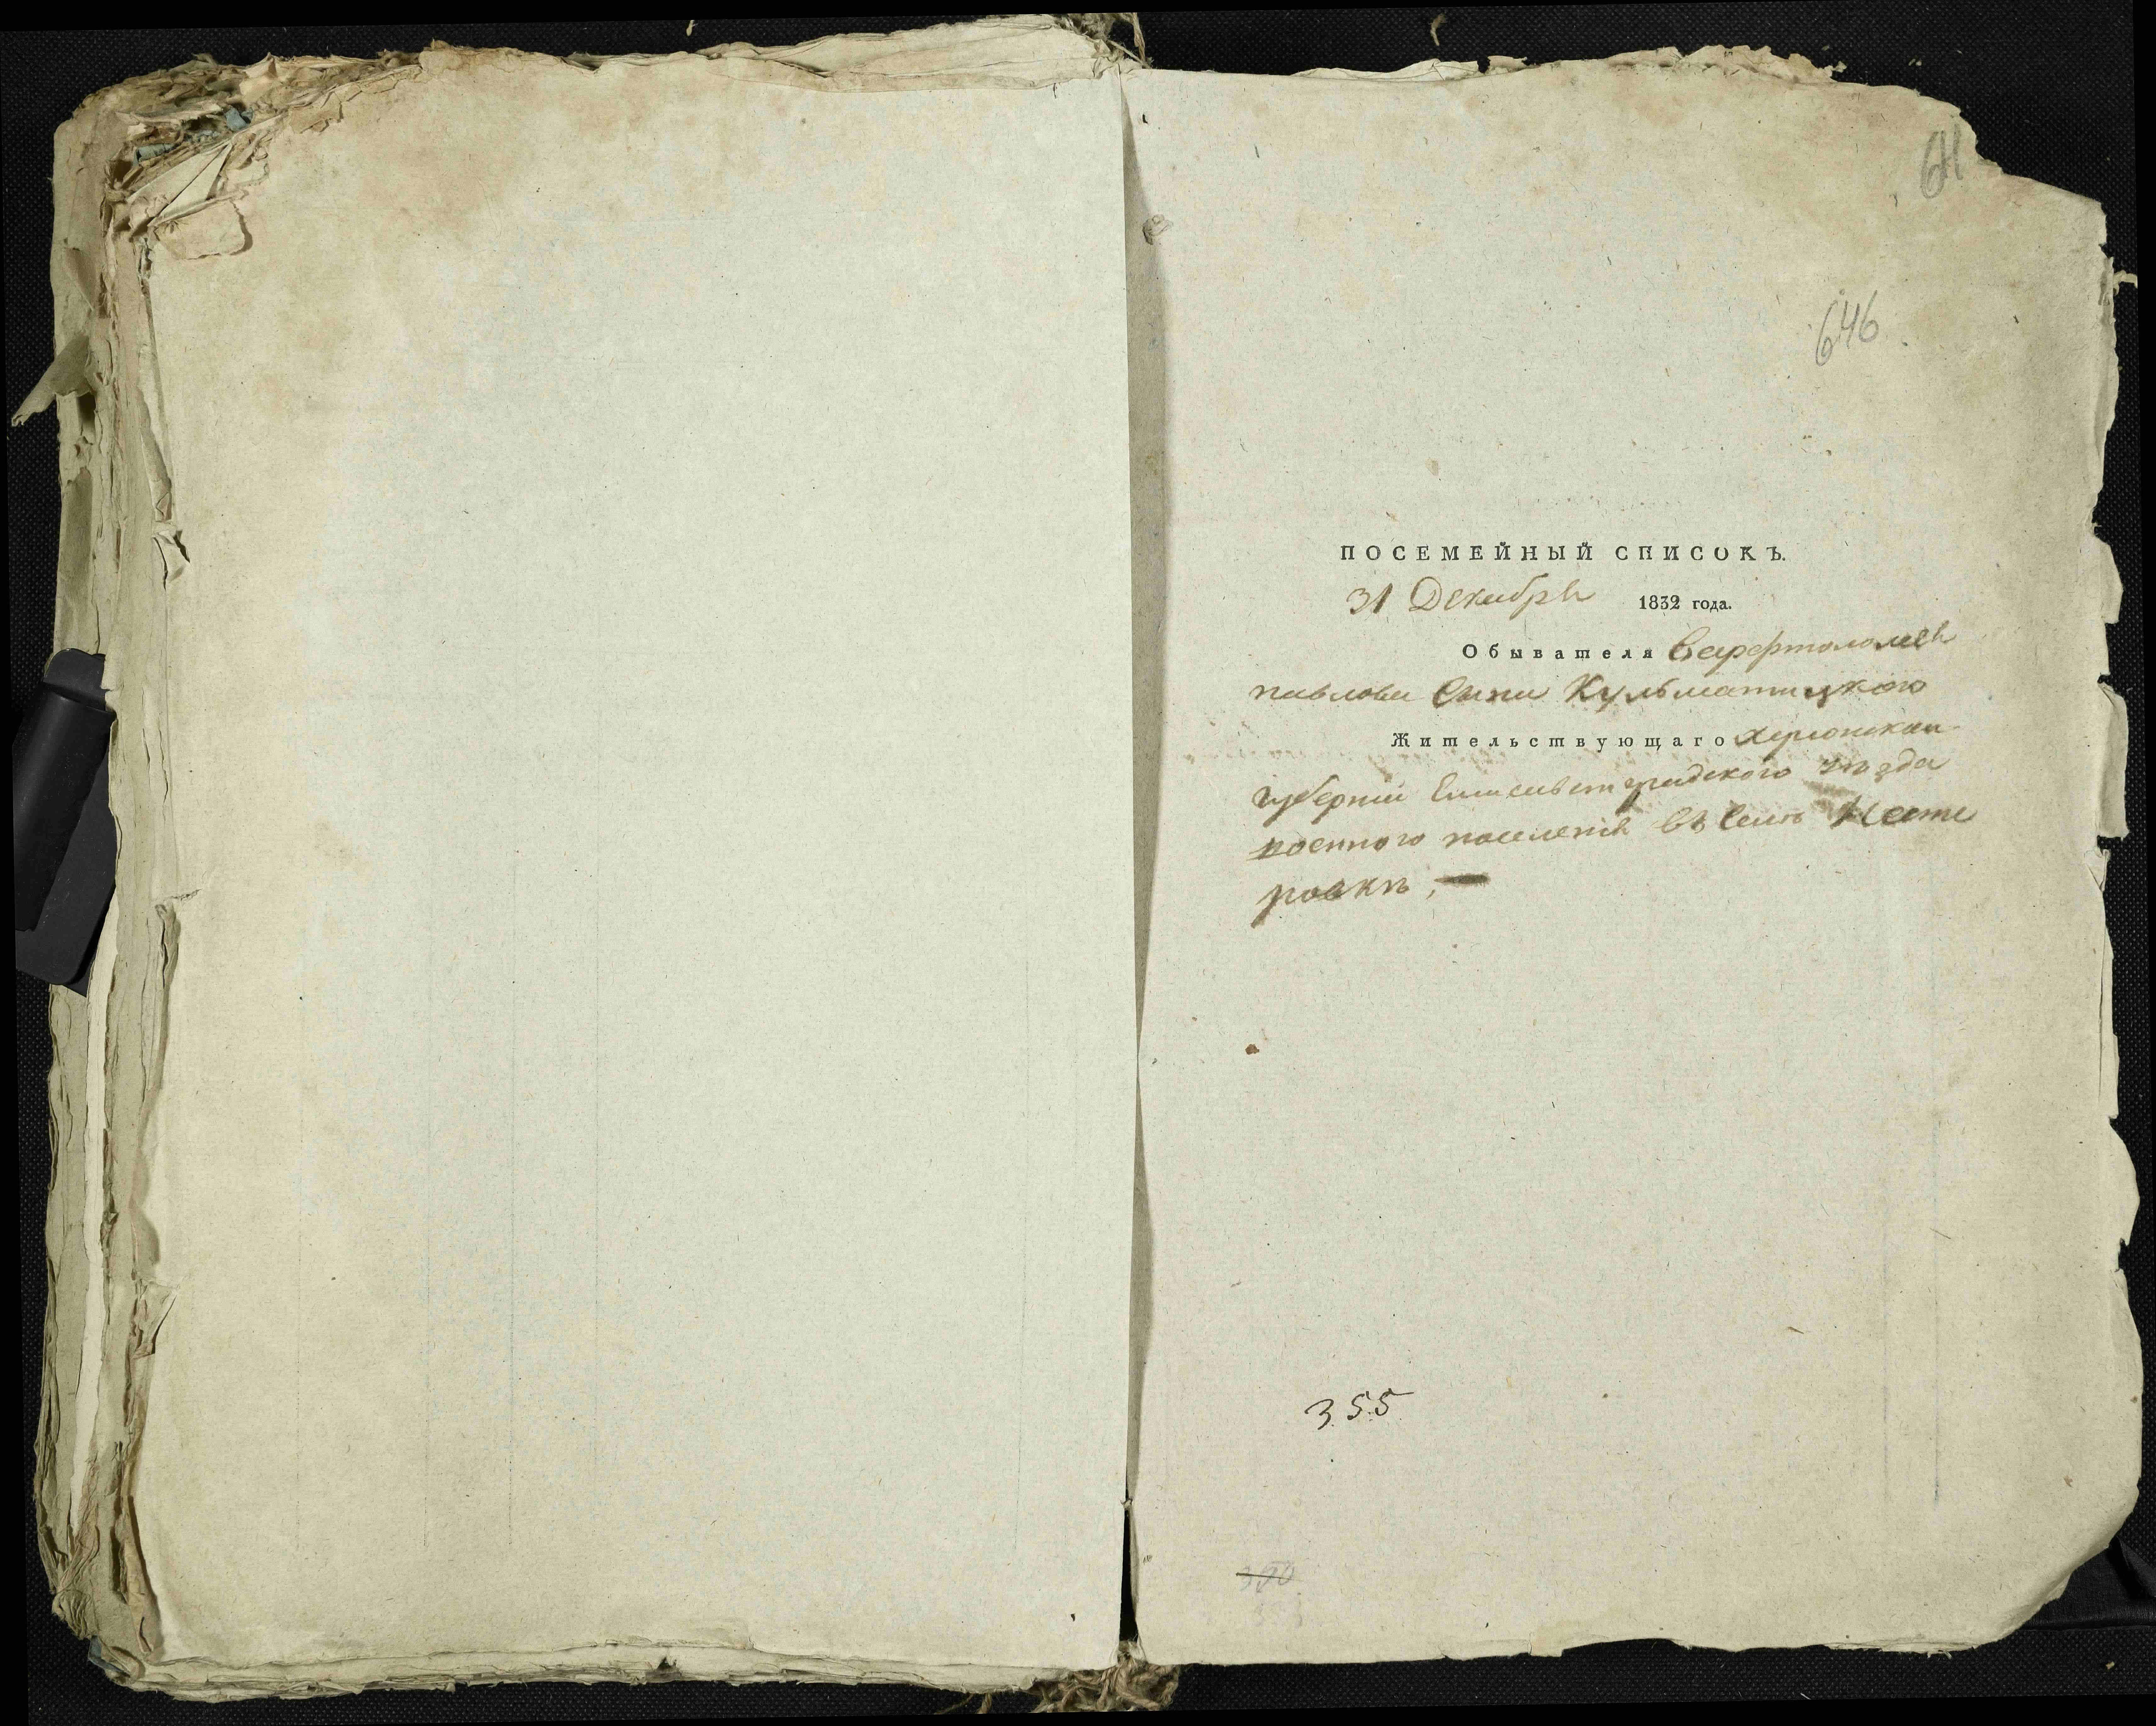 641
646
ПОСЕМЕЙНЫЙ СПИСОКЪ.
31 Декабря 1832 года.
Обывателя Варфтоломея
павлова Сына Кульматицкого
Жительствующаго Херсонской
губернии Елисаветградского уѣзда
военного поселенія въ Селѣ
ровкѣ,
355